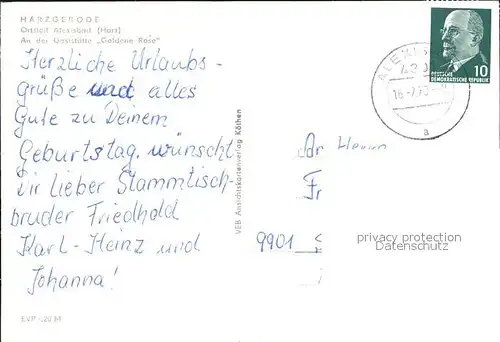 HARZGERODE
Ortsteil Alexisbad (Harz)
An der Gaststätte „Goldene Rose"
Herzliche Urlaubs-
grüße und alles
Gute zu Deinem
Geburtstag, wünscht
Dir lieber Stammtisch-
bruder Friedhold
Karl-Heinz und
Johanna!
EVP
VEB Ansichtskartenverlag Köthen
10
DEUTSCHE
DEMOKRATISCHE REPUBLIK
a
Herrn
Fr
9901
privacy protection
Datenschutz